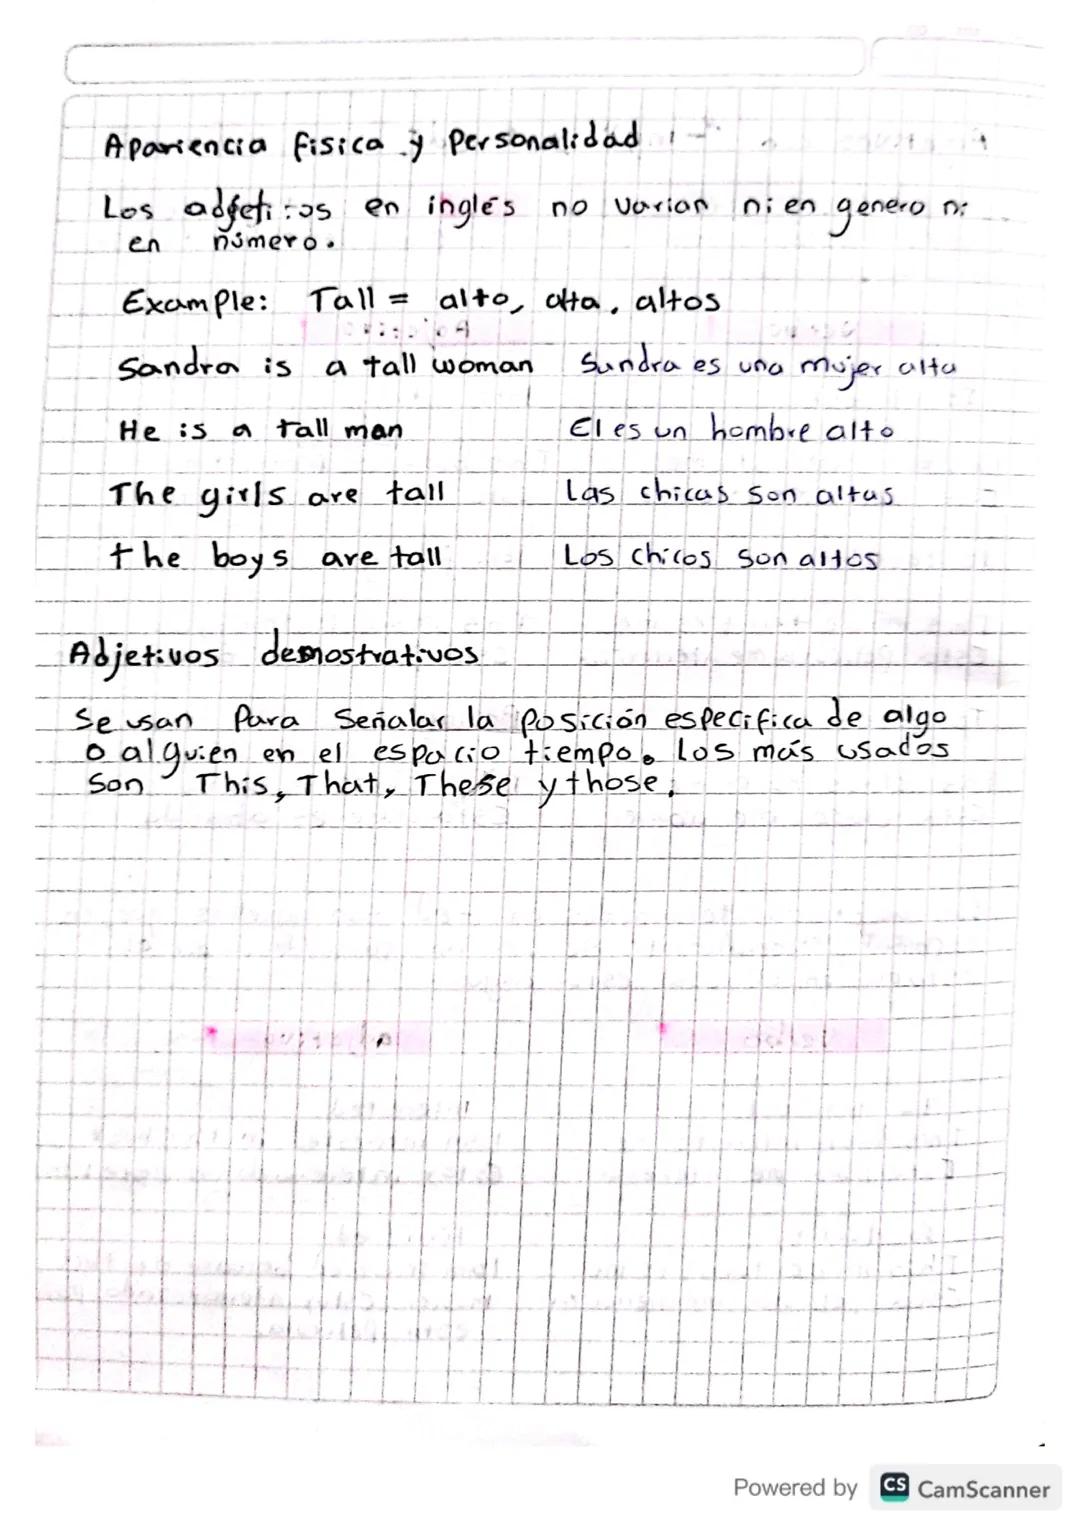 Apariencia fisica y Personalidad
Los en inglés no varian ni en genero ni
en número.
Example: Tall = alto, alta, altos
Sandra is a tall woman Sandra es una mujer alta
He is a tall man El es un hombre alto
The girls are tall Las chicas son altas
the boys are tall Los chicos son altos
Adjetivos demostrativos
Se usan Para Señalar la posición especifica de algo
o alguien en el espacio tiempo. Los más usados
son This, That, These y those.
Powered by CS CamScanner